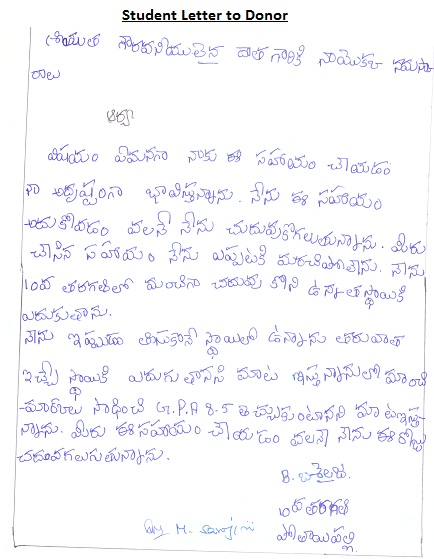 Student Letter to Donor
శ్రీయుత గౌరవనీయులైన దాత గారికి నాయొక్క నమస్కా
రాలు
ఆర్యా
విషయం ఏమనగా నాకు ఈ సహాయం చేయడం
నా అదృష్టంగా భావిస్తున్నాను. నేను ఈ సహాయం
అందుకోవడం వలనే నేను చదువుకొగలుగుతున్నాను. మీరు
చేసిన సహాయం నేను ఎప్పటికి మరచిపోలేను. నేను
10వ తరగతిలో మంచిగా చదువు కొని ఉన్నతస్థాయికి
ఎదుగుతాను.
నేను ఇప్పుడు తీసుకొనే స్థాయిలో ఉన్నాను తరువాత
ఇచ్చే స్థాయికి ఎదుగుతానని మాట ఇస్తున్నాను మంచి
మార్కులు సాధించి G.P.A 8.5 తెచ్చుకుంటానని మాటఇస్తు
న్నాను. మీరు ఈ సహాయం చేయడం వలనే నేను ఈ రోజు
చదువగలుగుతున్నాను.
B.
10వ తరగతి
పోతాయిపల్లి.
By M. Sarojini